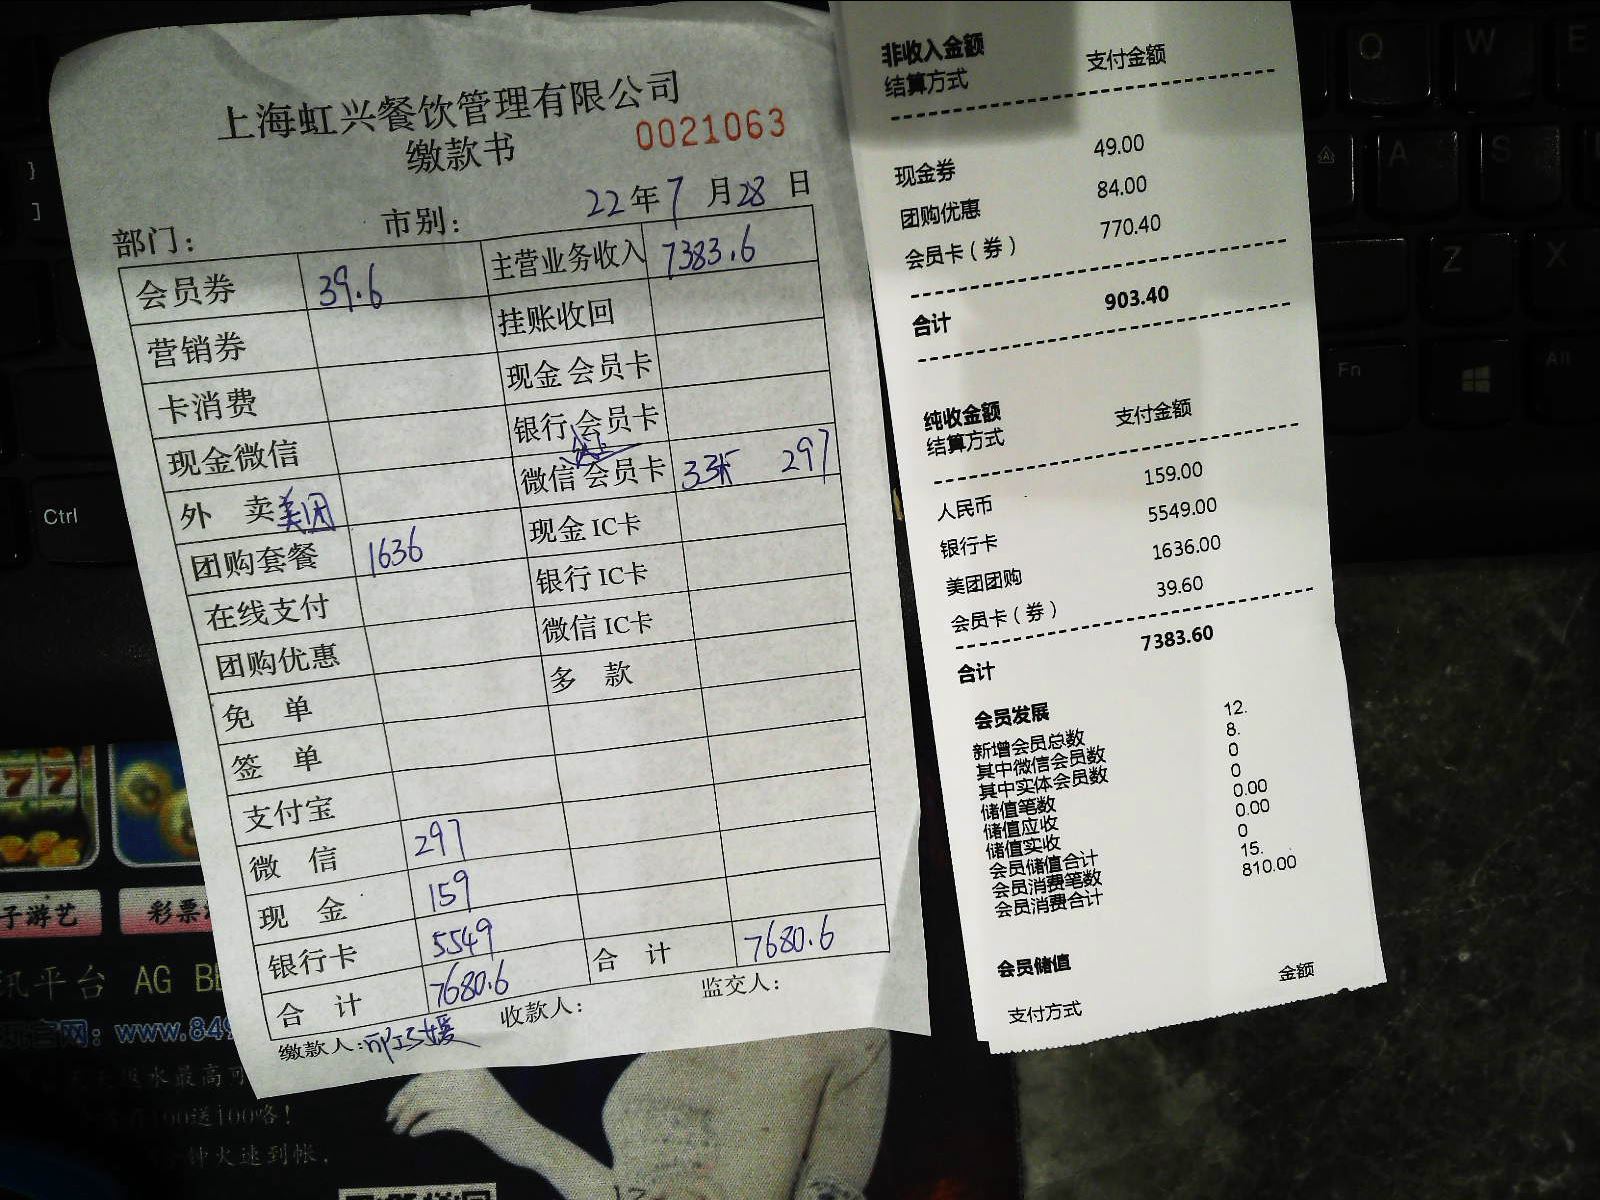 上海虹兴餐饮管理有限公司
缴款书
0021063
22年7月28日
部门：
市别：
会员券 39.6 主营业务收入 7383.6
营销券 挂账收回
卡消费 现金会员卡
现金微信 银行会员卡
外卖美团 微信会员卡 33张 297
团购套餐 1636 现金IC卡
在线支付 银行IC卡
团购优惠 微信IC卡
免单 多款
签单
支付宝
微信 297
现金 159
银行卡 5549
合计 7680.6 合计 7680.6
缴款人： 收款人： 监交人：
非收入金额
结算方式 支付金额
现金券 49.00
团购优惠 84.00
会员卡（券） 770.40
合计 903.40
纯收金额
结算方式 支付金额
人民币 159.00
银行卡 5549.00
美团团购 1636.00
会员卡（券） 39.60
合计 7383.60
会员发展
新增会员总数 12.
其中微信会员数 8.
其中实体会员数 0
储值笔数 0
储值应收 0.00
储值实收 0.00
会员储值合计 0
会员消费笔数 15.
会员消费合计 810.00
会员储值
支付方式 金额
Q W E
A S
Z X
Fn Alt
Ctrl
7 7
子游艺 彩票
讯平台 AG
官网：www.849
水最高可
送100咯！
火速到帐，